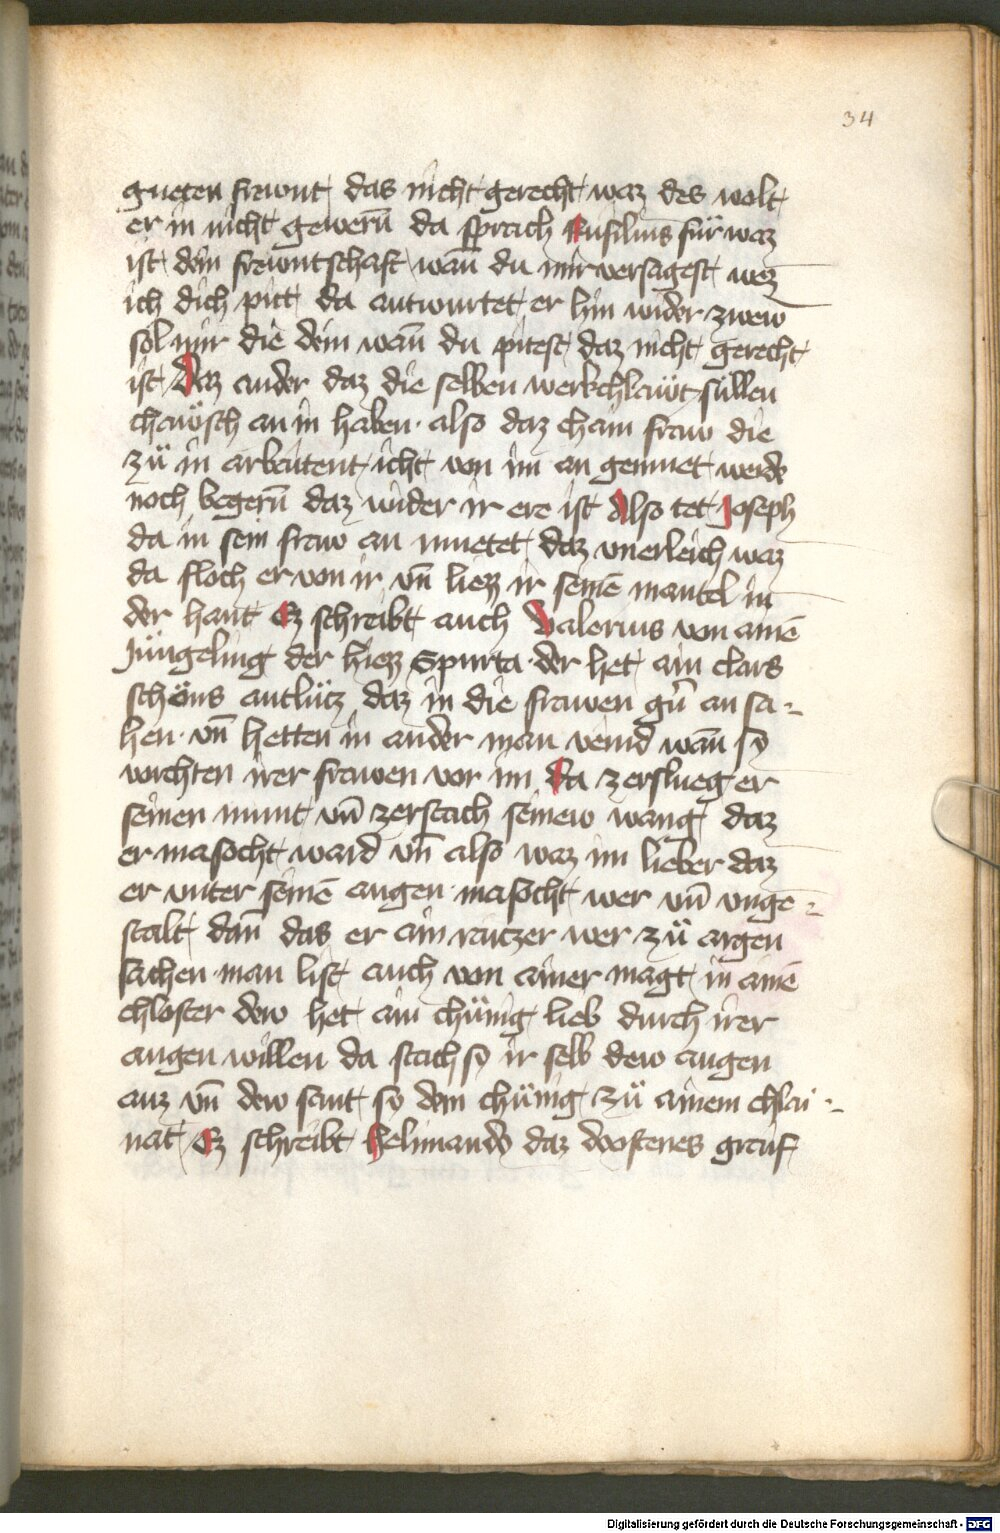 34
gueten frewnt das nicht gerecht waz des wolt
er in nicht gewern̄ da sprach Rusilius für waz
ist dein frewntschaft wan̄ du mir versagest wez
ich dich pitt da antwurtet er hin wider zwew
sol mir die dein wan̄ du pitest daz nicht gerecht
ist Daz ander daz die selben werkchlawt süllen
chawsch an in haben · also daz chain fraw die
zü in arbeitent icht von im an gemuet werde
noch begern̄ daz wider ir ere ist Also tet Joseph
da in sein fraw an muetet daz vnerleich waz
da floch er von ir vn̄ liezz ir seinē mantel in
der hant Ez schreibt auch Valerius von ainē
jüngeling der hiezz Spurta · der het ain clars
schöns antlütz daz in die frawen gn̄ an sa-
hen · vn̄ hetten in ander man veind wan̄ sy
vorchten irer frawen vor im Da zerslueg er
seinen munt vn̄ zerstach seinew wang daz
er masocht ward vn̄ also waz im lieber daz
er vnter seinē augen · masocht wer vn̄ vnge-
stalt dan̄ das er ain raitzer wer zü argen
sachen · man list auch von ainer magt in ainē
chloster dew het ain chünig lieb durch irer
augen willen da stach sy ir selb dew augen
auz vn̄ dew sant sy dem chünig zü ainem chlai-
nat Ez schreibt Helinandus daz dostenes greif
Digitalisierung gefördert durch die Deutsche Forschungsgemeinschaft - DFG